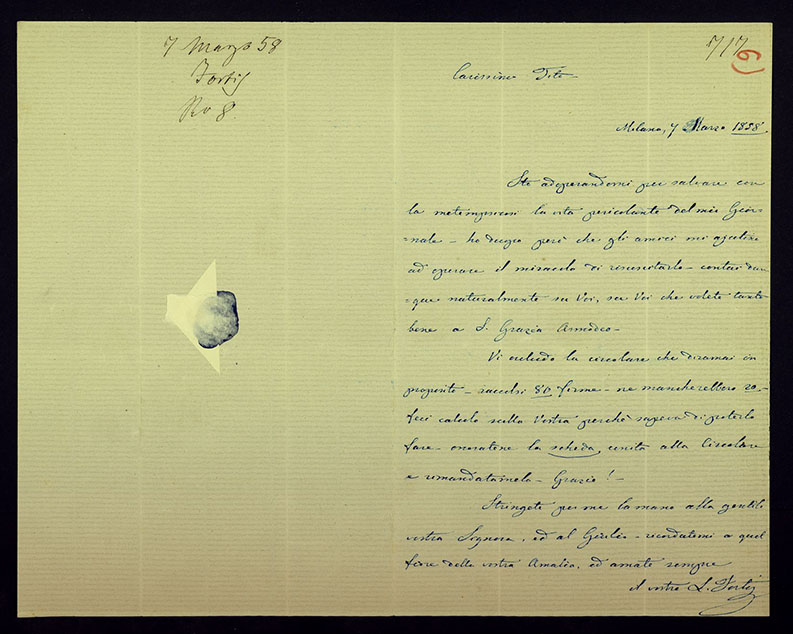 7 Marzo 58
Fortis
Ro 8.
7/7
6)
Carissimo Tito
Milano, 7 Marzo 1858.
Sto adoperandomi per salvare con
la metempsicosi la vita pericolante del mio Gior=
=nale – ho duopo però che gli amici mi ajutino
ad operare il miracolo di risuscitarlo – contai dun
=que naturalmente su Voi, su Voi che volete tanto
bene a S. Grazia Amedeo –
Vi accludo la circolare che diramai in
proposito – raccolsi 80 firme – ne mancherebbero 20 –
feci calcolo sulla Vostra perchè sapeva di poterlo
fare – onoratene la scheda, unita alla Circolare
e rimandatemela – Grazie! –
Stringete per me la mano alla gentile
vostra Signora, ed al Giulio – ricordatemi a quel
fiore della vostra Amalia, ed amate sempre
il vostro L. Fortis